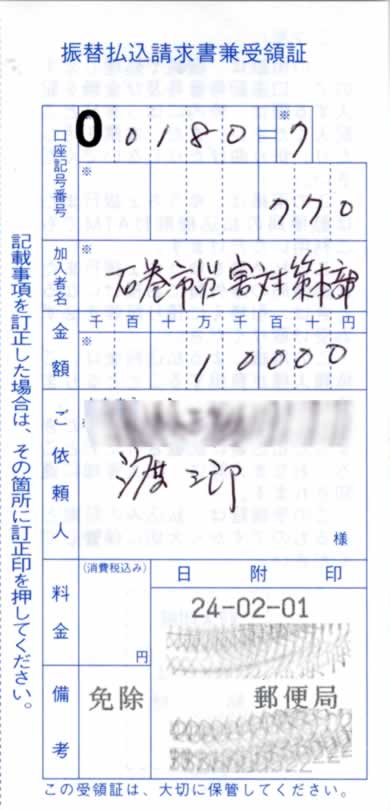 振替払込請求書兼受領証
口座記号番号
※
00180=7
※
770
加入者名
※
石巻市災害対策本部
金額
千百十万千百十円
※
10000
ご依頼人
※
渡 郷
様
料金
(消費税込み)
円
日附印
24-02-01
備考
免除
郵便局
記載事項を訂正した場合は、その箇所に訂正印を押してください。
この受領証は、大切に保管してください。